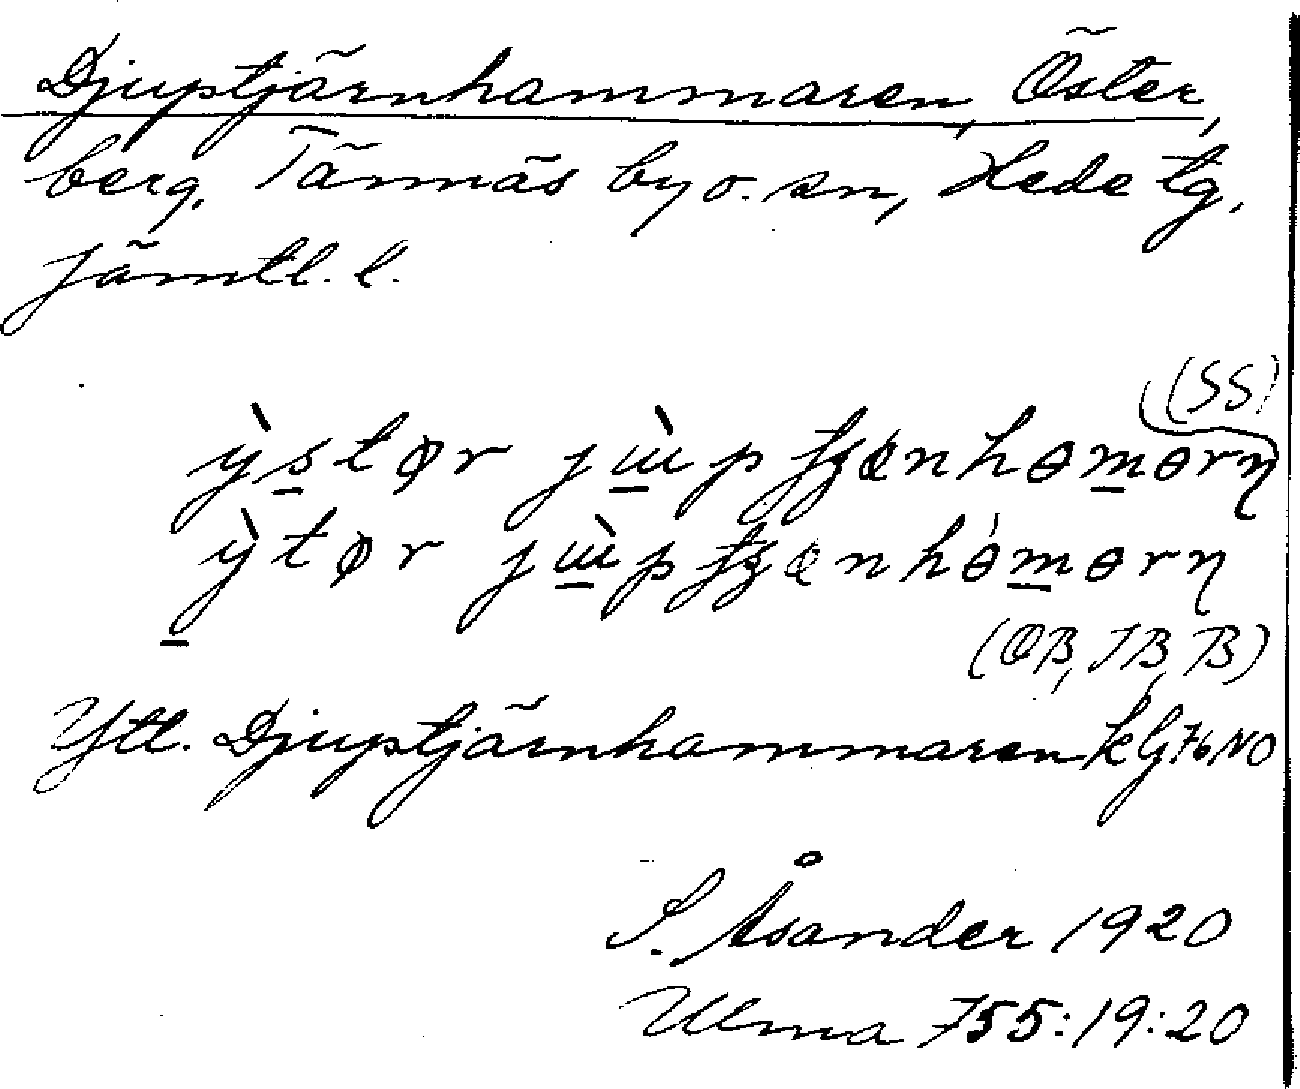 Djuptjärnhammaren, Öster,
berg, Tännäs by o. sn, Hede tg,
Jämtl. l.
(SS)
ỳstør jɯ̀pʃʒænhɵmɵrn̩
ỳtør jɯ̀pʃʒænhɵ́mɵrn̩
(OB, JB, B)
Ytt. Djuptjärnhammaren k Gj 76 NO
S. Åsander 1920
Ulma 755:19:20